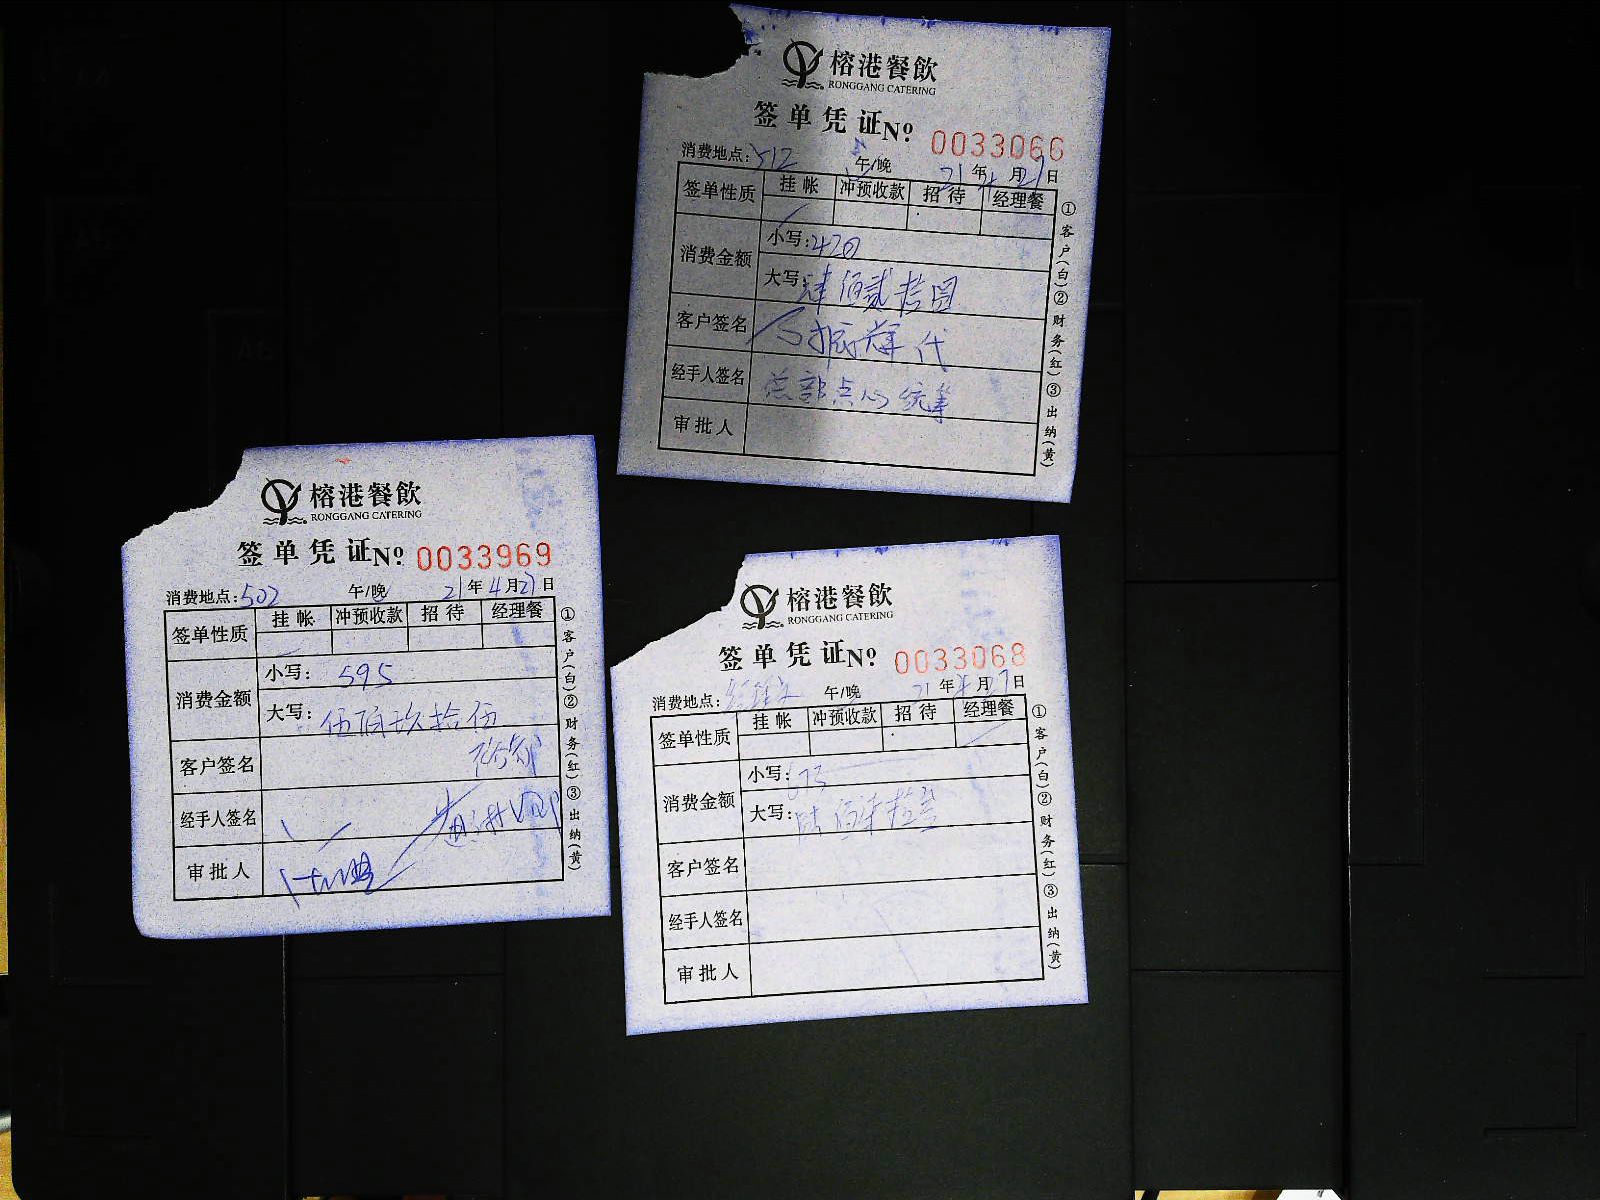 榕港餐飲
RONGGANG CATERING
签单凭证 Nº 0033066
消费地点:512 午/晚 21年4月27日
签单性质 挂帐 冲预收款 招待 经理餐
消费金额 小写:420
大写:肆佰贰拾圆
客户签名 振辉代
经手人签名 总部点心统筹
审批人
①客户(白)②财务(红)③出纳(黄)
榕港餐飲
RONGGANG CATERING
签单凭证 Nº 0033969
消费地点:502 午/晚 21年4月27日
签单性质 挂帐 冲预收款 招待 经理餐
消费金额 小写:595
大写:伍佰玖拾伍
客户签名
经手人签名
审批人
①客户(白)②财务(红)③出纳(黄)
榕港餐飲
RONGGANG CATERING
签单凭证 Nº 0033068
消费地点: 午/晚 21年4月27日
签单性质 挂帐 冲预收款 招待 经理餐
消费金额 小写:673
大写:陆佰柒拾叁
客户签名
经手人签名
审批人
①客户(白)②财务(红)③出纳(黄)